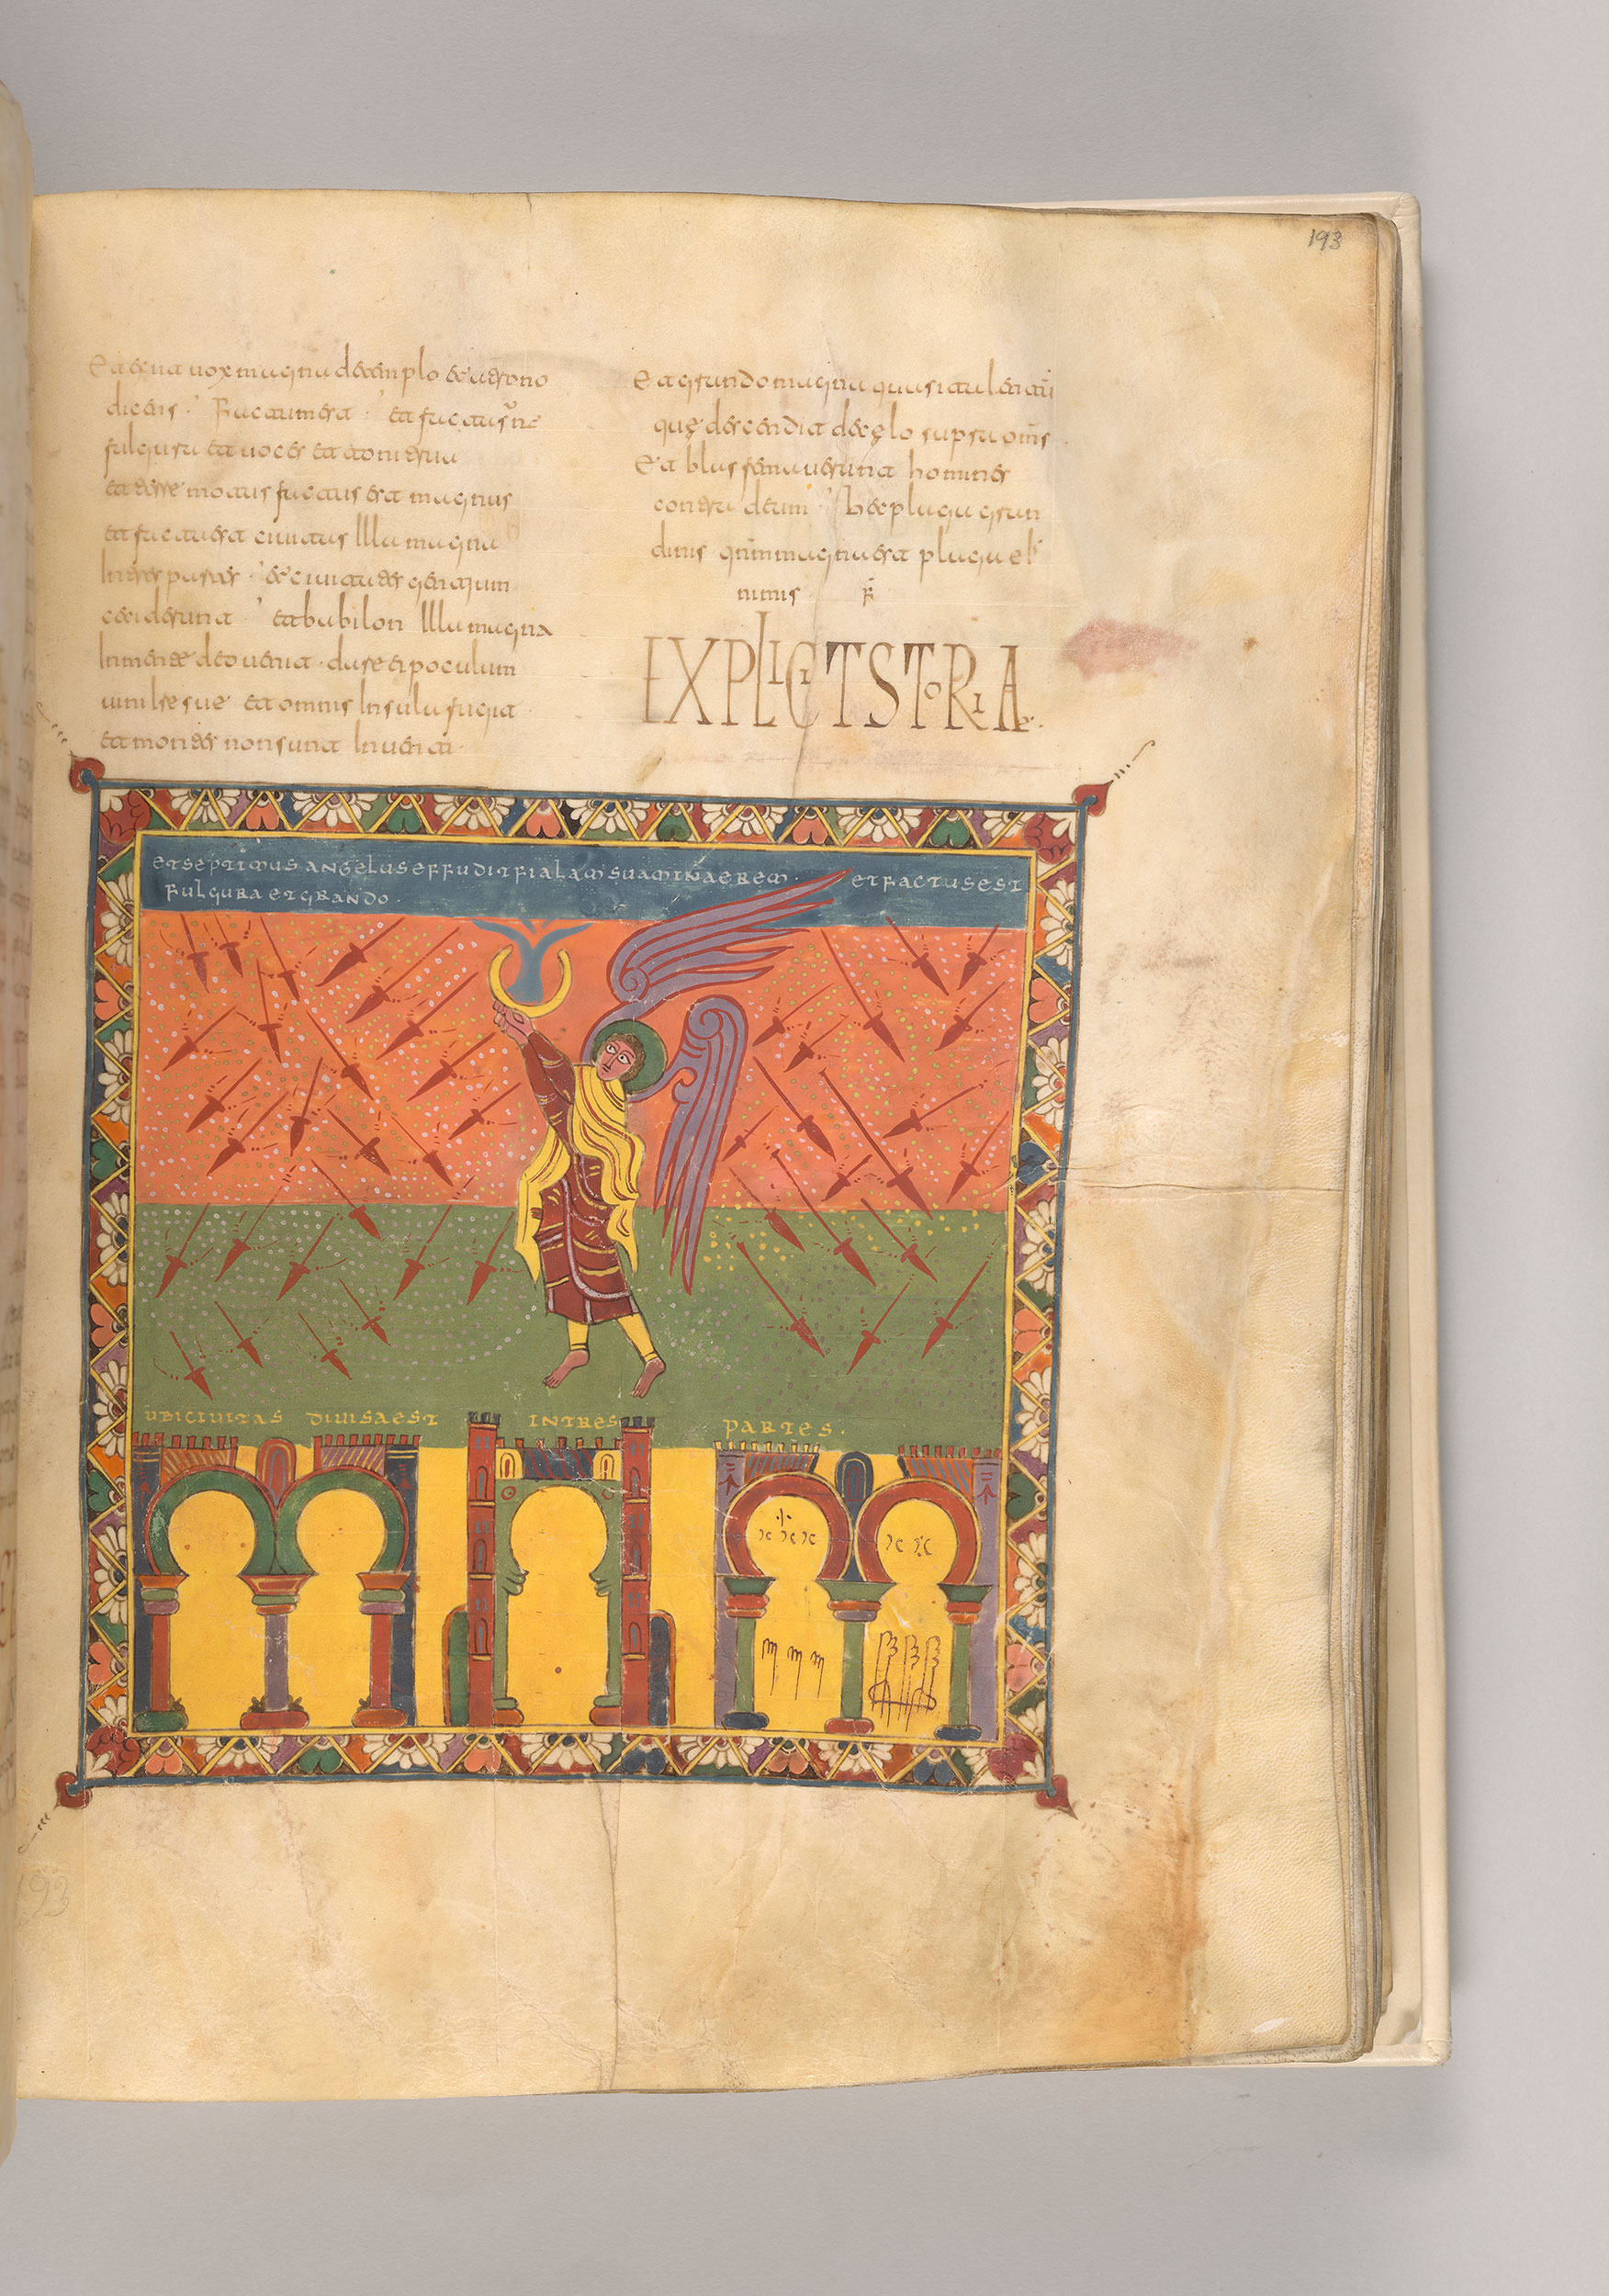 193
uox magna de templo
dicens. Factum est. et facta sunt
fulgura et uoces et tonitrua
et terre motus factus est magnus
et facta est ciuitas Illa magna
In tres partes. et ciuitates gentium
ceciderunt et babilon Illa magna
In mente deo uenit. dare ei poculum
uini ire sue et omnis Insula fugit
et montes non sunt Inuenti.
Et grando magna quasi
quę descendit de cęlo super omnes
Et blasfemauerunt homines
contra deum plaga gran
dinis magna est plaga
nimis
EXPLICIT STORIA
ET SEPTIMUS ANGELUS EFFUDIT FIALAM SUAM IN AEREM. ET FACTUS EST
FULGURA ET GRANDO.
UBI CIUITAS DIUISA EST IN TRES PARTES.
193